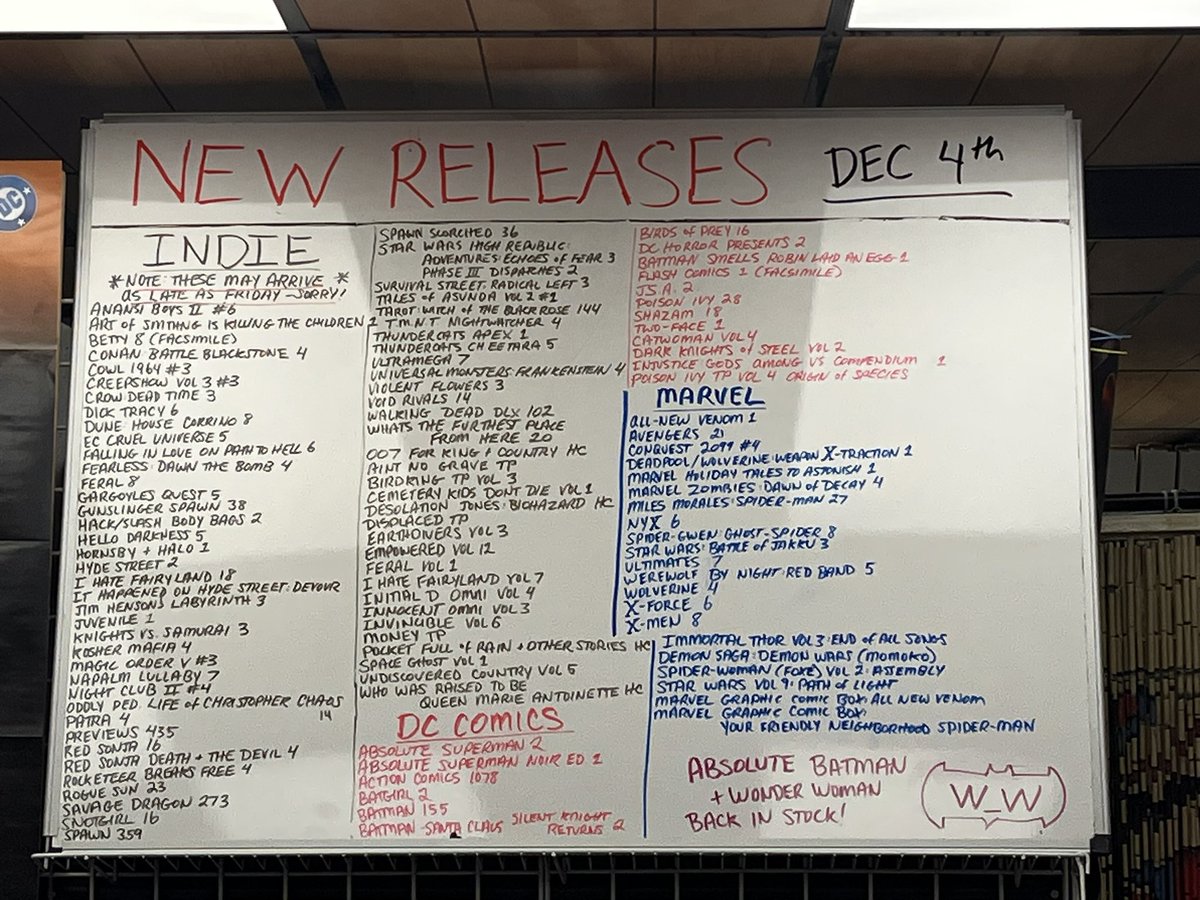 DC
NEW RELEASES DEC 4th
INDIE
*NOTE: THESE MAY ARRIVE *
AS LATE AS FRIDAY - SORRY!
ANANSI BOYS II #6
ART OF SMTHNG IS KILLING THE CHILDREN 1
BETTY 8 (FACSIMILE)
CONAN BATTLE BLACKSTONE 4
COWL 1964 #3
CREEPSHOW VOL 3 #3
CROW DEAD TIME 3
DICK TRACY 6
DUNE HOUSE CORRINO 8
EC CRUEL UNIVERSE 5
FALLING IN LOVE ON PATH TO HELL 6
FEARLESS DAWN THE BOMB 4
FERAL 8
GARGOYLES QUEST 5
GUNSLINGER SPAWN 38
HACK/SLASH BODY BAGS 2
HELLO DARKNESS 5
HORNSBY + HALO 1
HYDE STREET 2
I HATE FAIRYLAND 18
IT HAPPENED ON HYDE STREET: DEVOUR
JIM HENSONS LABYRINTH 3
JUVENILE 1
KNIGHTS VS. SAMURAI 3
KOSHER MAFIA 4
MAGIC ORDER V #3
NAPALM LULLABY 7
NIGHT CLUB II #4
ODDLY PED. LIFE OF CHRISTOPHER CHAOS
14
PATRA 4
PREVIEWS 435
RED SONJA 16
RED SONJA DEATH + THE DEVIL 4
ROCKETEER BREAKS FREE 4
ROGUE SUN 23
SAVAGE DRAGON 273
SNOTGIRL 16
SPAWN 359
SPAWN SCORCHED 36
STAR WARS HIGH REPUBLIC:
ADVENTURES: ECHOES OF FEAR 3
PHASE III DISPATCHES 2
SURVIVAL STREET: RADICAL LEFT 3
TALES OF ASUNDA VOL 2 #1
TAROT: WITCH OF THE BLACK ROSE 144
T.M.N.T NIGHTWATCHER 4
THUNDERCATS APEX 1
THUNDERCATS CHEETARA 5
ULTRAMEGA 7
UNIVERSAL MONSTERS: FRANKENSTEIN 4
VIOLENT FLOWERS 3
VOID RIVALS 14
WALKING DEAD DLX 102
WHATS THE FURTHEST PLACE
FROM HERE 20
007 FOR KING + COUNTRY HC
AINT NO GRAVE TP
BIRDKING TP VOL 3
CEMETERY KIDS DONT DIE VOL 1
DESOLATION JONES: BIOHAZARD HC
DISPLACED TP
EARTHDIVERS VOL 3
EMPOWERED VOL 12
FERAL VOL 1
I HATE FAIRYLAND VOL 7
INITIAL D OMNI VOL 4
INNOCENT OMNI VOL 3
INVINCIBLE VOL 6
MONEY TP
POCKET FULL OF RAIN + OTHER STORIES HC
SPACE GHOST VOL 1
UNDISCOVERED COUNTRY VOL 5
WHO WAS RAISED TO BE
QUEEN MARIE ANTOINETTE HC
DC COMICS
ABSOLUTE SUPERMAN 2
ABSOLUTE SUPERMAN NOIR ED. 1
ACTION COMICS 1078
BATGIRL 2
BATMAN 155
BATMAN-SANTA CLAUS SILENT KNIGHT
RETURNS 2
BIRDS OF PREY 16
DC HORROR PRESENTS 2
BATMAN SMELLS ROBIN LAID AN EGG 1
FLASH COMICS 1 (FACSIMILE)
JSA 2
POISON IVY 28
SHAZAM 18
TWO-FACE 1
CATWOMAN VOL 4
DARK KNIGHTS OF STEEL VOL 2
INJUSTICE GODS AMONG US COMPENDIUM 1
POISON IVY TP VOL 4 ORIGIN OF SPECIES
MARVEL
ALL-NEW VENOM 1
AVENGERS 21
CONQUEST 2099 #4
DEADPOOL/WOLVERINE: WEAPON X-TRACTION 1
MARVEL HOLIDAY TALES TO ASTONISH 1
MARVEL ZOMBIES: DAWN OF DECAY 4
MILES MORALES: SPIDER-MAN 27
NYX 6
SPIDER-GWEN: GHOST-SPIDER 8
STAR WARS: BATTLE OF JAKKU 3
ULTIMATES 7
WEREWOLF BY NIGHT: RED BAND 5
WOLVERINE 4
X-FORCE 6
X-MEN 8
IMMORTAL THOR VOL 3: END OF ALL SONGS
DEMON SAGA: DEMON WARS (MOMOKO)
SPIDER-WOMAN (FOXE) VOL 2: ASSEMBLY
STAR WARS VOL 9: PATH OF LIGHT
MARVEL GRAPHIC COMIC BOX: ALL NEW VENOM
MARVEL GRAPHIC COMIC BOX:
YOUR FRIENDLY NEIGHBORHOOD SPIDER-MAN
ABSOLUTE BATMAN
+ WONDER WOMAN
BACK IN STOCK!
W_W